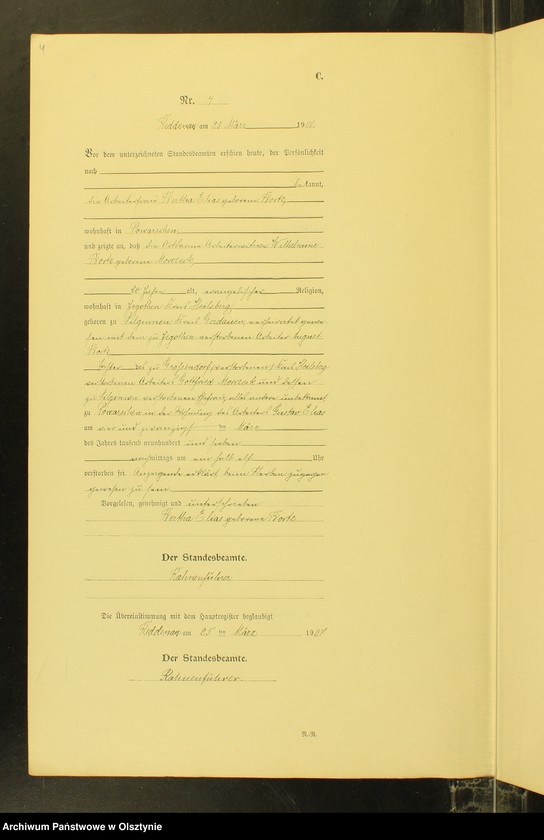 4
C.
Nr. 4
Reddenau am 25. März 1907.
Vor dem unterzeichneten Standesbeamten erschien heute, der Persönlichkeit
nach
bekannt,
die Arbeiterfrau Bertha Elias geborene Korte
wohnhaft in Powarschen
und zeigte an, daß die Arbeiterwitwe Wilhelmine
Korte geborene
Jahre alt, evangelischer Religion,
wohnhaft in Kreis Heilsberg
geboren zu Kreis
mit dem zu verstorbenen Arbeiter August
Korte
Tochter des zu Großendorf Kreis Heilsberg
verstorbenen Arbeiters Gottfried und dessen
zu verstorbenen Ehefrau
zu Powarschen in der Wohnung des Arbeiters Gustav Elias
am vier und zwanzigsten März
des Jahres tausend neunhundert und sieben
mittags um Uhr
verstorben sei. Anzeigende erklärt beim Sterben zugegen
gewesen zu sein.
Vorgelesen, genehmigt und unterschrieben
Bertha Elias geborene Korte
Der Standesbeamte.
Rahnenführer
Die Übereinstimmung mit dem Hauptregister beglaubigt
Reddenau am 25 ten März 1907
Der Standesbeamte.
Rahnenführer
Archiwum Państwowe w Olsztynie